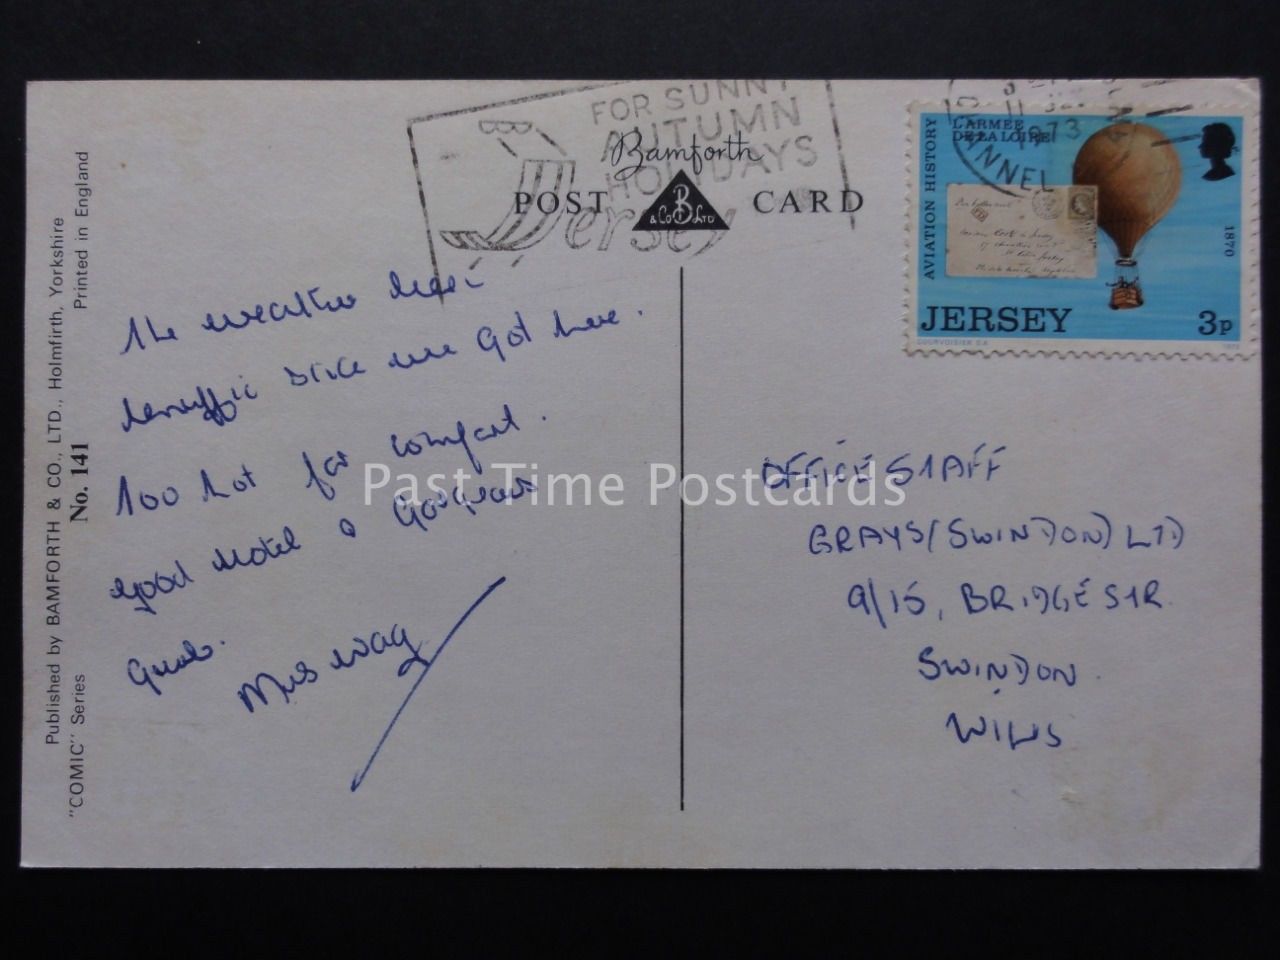 Published by BAMFORTH & CO., LTD., Holmfirth, Yorkshire
"COMIC" Series
No. 141
Printed in England
FOR SUNNY
AUTUMN
HOLIDAYS
Jersey
Bamforth
POST CARD
B
& Co LTD
The weather been
terriffic since we got here.
Too hot for comfort.
good Hotel & Gorgeous
Grub.
Mrs Way
L'ARMÉE
DE LA LOIRE
AVIATION HISTORY
1870
JERSEY
3p
COURVOISIER S.A.
1973
1973
ANNEL
OFFICE STAFF
GRAYS (SWINDON) LTD
9/15, BRIDGE STR.
SWINDON.
WILTS
Past Time Postcards